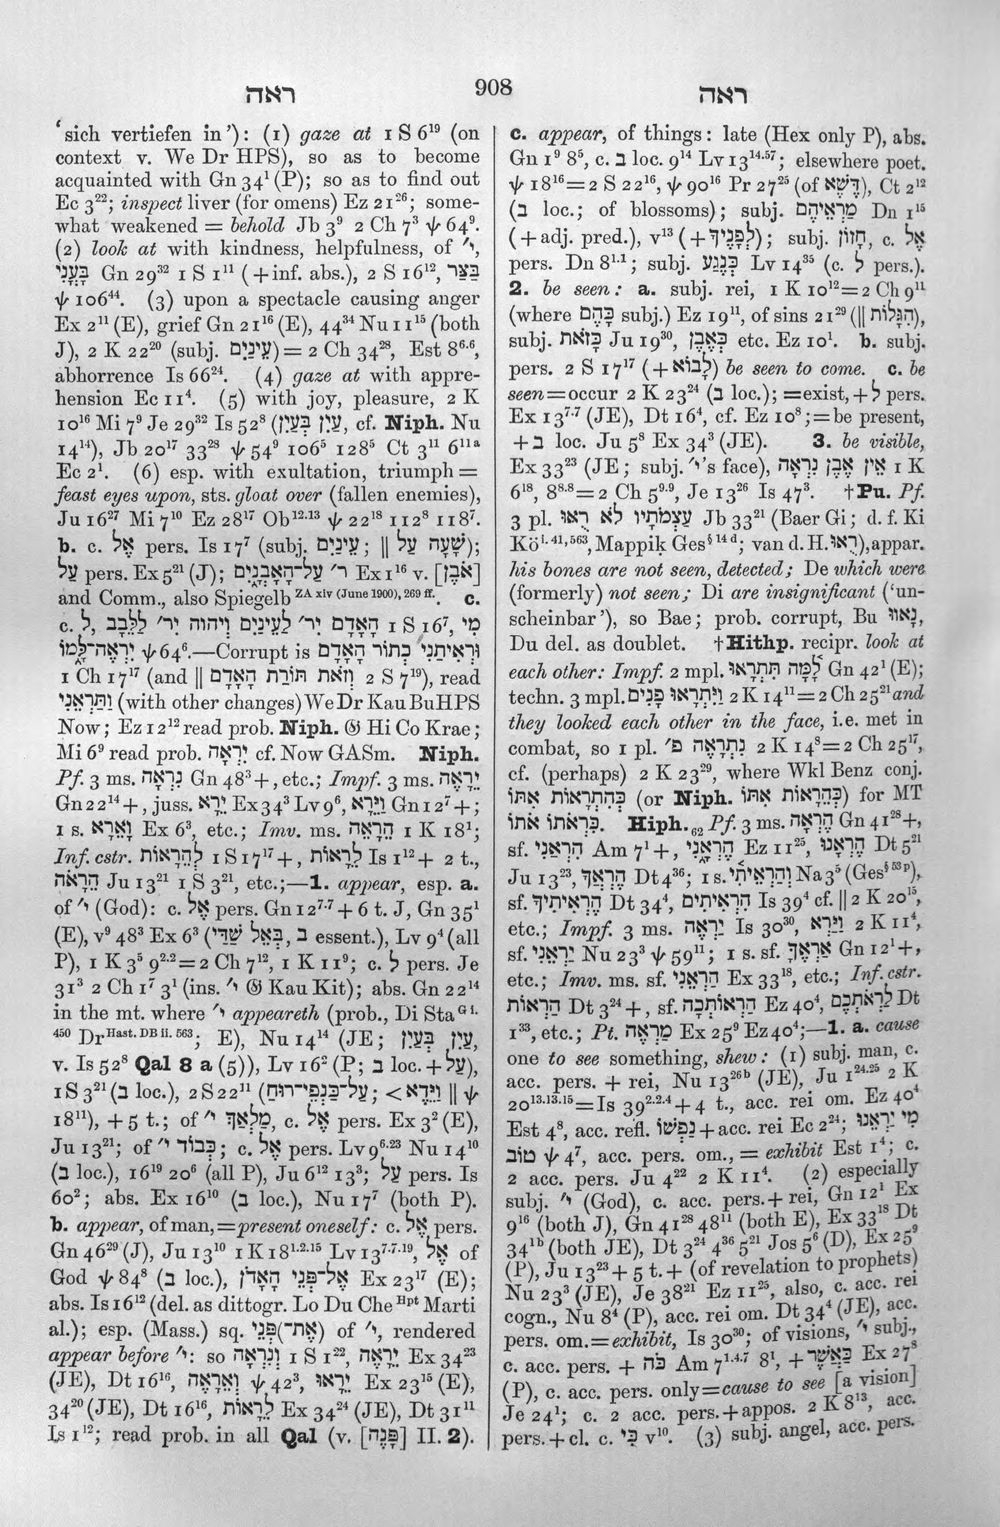 ראה
908
ראה
'sich vertiefen in'): (1) gaze at 1 S 6¹⁹ (on
context v. We Dr HPS), so as to become
acquainted with Gn 34¹ (P); so as to find out
Ec 3²²; inspect liver (for omens) Ez 21²⁶; some-
what weakened = behold Jb 3⁹ 2 Ch 7³ ψ 64⁹.
(2) look at with kindness, helpfulness, of ׳י,
בְּעָנְיִי Gn 29³² 1 S 1¹¹ (+inf. abs.), 2 S 16¹², בַּצַּר
ψ 106⁴⁴. (3) upon a spectacle causing anger
Ex 2¹¹ (E), grief Gn 21¹⁶ (E), 44³⁴ Nu 11¹⁵ (both
J), 2 K 22²⁰ (subj. עֵינַיִם) = 2 Ch 34²⁸, Est 8⁶·⁶,
abhorrence Is 66²⁴. (4) gaze at with appre-
hension Ec 11⁴. (5) with joy, pleasure, 2 K
10¹⁶ Mi 7⁹ Je 29³² Is 52⁸ (עַיִן בְּעַיִן, cf. Niph. Nu
14¹⁴), Jb 20¹⁷ 33²⁸ ψ 54⁹ 106⁵ 128⁵ Ct 3¹¹ 6¹¹ᵃ
Ec 2¹. (6) esp. with exultation, triumph =
feast eyes upon, sts. gloat over (fallen enemies),
Ju 16²⁷ Mi 7¹⁰ Ez 28¹⁷ Ob¹²·¹³ ψ 22¹⁸ 112⁸ 118⁷.
b. c. אֶל pers. Is 17⁷ (subj. עֵינַיִם; ‖ שָׁעָה עַל);
עַל pers. Ex 5²¹ (J); ר׳ עַל־הָאָבְנָיִם Ex 1¹⁶ v. [אֹבֶן]
and Comm., also Spiegelb ZA xiv (June 1900), 269 ff. c.
c. לְ, הָאָדָם יר׳ לַעֵינַיִם וַיהוה יר׳ לַלֵּבָב 1 S 16⁷, מִי
יִרְאֶה־לָּמוֹ ψ 64⁶.—Corrupt is וּרְאִיתַנִי כְּתוֹר הָאָדָם
1 Ch 17¹⁷ (and ‖ וְזֹאת תּוֹרַת הָאָדָם 2 S 7¹⁹), read
וַתַּרְאֵנִי (with other changes) We Dr Kau Bu HPS
Now; Ez 12¹² read prob. Niph. 𝔊 Hi Co Krae;
Mi 6⁹ read prob. יִרְאֶה cf. Now GASm. Niph.
Pf. 3 ms. נִרְאָה Gn 48³ +, etc.; Impf. 3 ms. יֵרָאֶה
Gn 22¹⁴ +, juss. יֵרָא Ex 34³ Lv 9⁶, וַיֵּרָא Gn 12⁷ +;
1 s. וָאֵרָא Ex 6³, etc.; Imv. ms. הֵרָאֵה 1 K 18¹;
Inf. cstr. לְהֵרָאוֹת 1 S 17¹⁷ +, לֵרָאוֹת Is 1¹² + 2 t.,
הֵרָאֹה Ju 13²¹ 1 S 3²¹, etc.;—1. appear, esp. a.
of ׳י (God): c. אֶל pers. Gn 12⁷·⁷ + 6 t. J, Gn 35¹
(E), v⁹ 48³ Ex 6³ (בְּאֵל שַׁדַּי, בְּ essent.), Lv 9⁴ (all
P), 1 K 3⁵ 9²·² = 2 Ch 7¹², 1 K 11⁹; c. לְ pers. Je
31³ 2 Ch 1⁷ 3¹ (ins. ׳י 𝔊 Kau Kit); abs. Gn 22¹⁴
in the mt. where ׳י appeareth (prob., Di Sta G i.
450 Dr Hast. DB ii. 563; E), Nu 14¹⁴ (JE; עַיִן בְּעַיִן,
v. Is 52⁸ Qal 8 a (5)), Lv 16² (P; בְּ loc. + עַל),
1 S 3²¹ (בְּ loc.), 2 S 22¹¹ (עַל־כַּנְפֵי־רוּחַ; < וַיֵּדֶא ‖ ψ
18¹¹), + 5 t.; of ׳י מַלְאַךְ, c. אֶל pers. Ex 3² (E),
Ju 13²¹; of ׳י כְּבוֹד; c. אֶל pers. Lv 9⁶·²³ Nu 14¹⁰
(בְּ loc.), 16¹⁹ 20⁶ (all P), Ju 6¹² 13³; עַל pers. Is
60²; abs. Ex 16¹⁰ (בְּ loc.), Nu 17⁷ (both P).
b. appear, of man, = present oneself: c. אֶל pers.
Gn 46²⁹ (J), Ju 13¹⁰ 1 K 18¹·²·¹⁵ Lv 13⁷·⁷·¹⁹, אֶל of
God ψ 84⁸ (בְּ loc.), אֶל־פְּנֵי הָאָדֹן Ex 23¹⁷ (E);
abs. Is 16¹² (del. as dittogr. Lo Du Che Hpt Marti
al.); esp. (Mass.) sq. (אֶת־)פְּנֵי of ׳י, rendered
appear before ׳י: so וְנִרְאָה 1 S 1²², יֵרָאֶה Ex 34²³
(JE), Dt 16¹⁶, וְאֵרָאֶה ψ 42³, יֵרָאוּ Ex 23¹⁵ (E),
34²⁰ (JE), Dt 16¹⁶, לֵרָאוֹת Ex 34²⁴ (JE), Dt 31¹¹
Is 1¹²; read prob. in all Qal (v. [פָּנֶה] II. 2).
c. appear, of things: late (Hex only P), abs.
Gn 1⁹ 8⁵, c. בְּ loc. 9¹⁴ Lv 13¹⁴·⁵⁷; elsewhere poet.
ψ 18¹⁶ = 2 S 22¹⁶, ψ 90¹⁶ Pr 27²⁵ (of דֶּשֶׁא), Ct 2¹²
(בְּ loc.; of blossoms); subj. מַרְאֵיהֶם Dn 1¹⁵
(+ adj. pred.), v¹³ (+ לְפָנֶיךָ); subj. חָזוֹן, c. אֶל
pers. Dn 8¹·¹; subj. כְּנֶגַע Lv 14³⁵ (c. לְ pers.).
2. be seen: a. subj. rei, 1 K 10¹² = 2 Ch 9¹¹
(where כָּהֵם subj.) Ez 19¹¹, of sins 21²⁹ (‖ הִגָּלוֹת),
subj. כָּזֹאת Ju 19³⁰, כְּאֶבֶן etc. Ez 10¹. b. subj.
pers. 2 S 17¹⁷ (+ לָבוֹא) be seen to come. c. be
seen = occur 2 K 23²⁴ (בְּ loc.); = exist, + לְ pers.
Ex 13⁷·⁷ (JE), Dt 16⁴, cf. Ez 10⁸; = be present,
+ בְּ loc. Ju 5⁸ Ex 34³ (JE). 3. be visible,
Ex 33²³ (JE; subj. ׳י's face), אֵין אֶבֶן נִרְאָה 1 K
6¹⁸, 8⁸·⁸ = 2 Ch 5⁹·⁹, Je 13²⁶ Is 47³. †Pu. Pf.
3 pl. עַצְמֹתָיו לֹא רֻאוּ Jb 33²¹ (Baer Gi; d. f. Ki
Kö i. 41, 563, Mappik Ges § 14 d; van d. H. רֻאוּ), appar.
his bones are not seen, detected; De which were
(formerly) not seen; Di are insignificant ('un-
scheinbar'), so Bae; prob. corrupt, Bu נָאווּ,
Du del. as doublet. †Hithp. recipr. look at
each other: Impf. 2 mpl. לָמָּה תִּתְרָאוּ Gn 42¹ (E);
techn. 3 mpl. וַיִּתְרָאוּ פָנִים 2 K 14¹¹ = 2 Ch 25²¹ and
they looked each other in the face, i.e. met in
combat, so 1 pl. נִתְרָאֶה פ׳ 2 K 14⁸ = 2 Ch 25¹⁷,
cf. (perhaps) 2 K 23²⁹, where Wkl Benz conj.
כְּהִתְרָאוֹת אִתּוֹ (or Niph. כְּהֵרָאוֹת אִתּוֹ) for MT
כִּרְאֹתוֹ אֹתוֹ. Hiph.₆₂ Pf. 3 ms. הֶרְאָה Gn 41²⁸ +,
sf. הִרְאַנִי Am 7¹ +, הֶרְאָנִי Ez 11²⁵, הֶרְאָנוּ Dt 5²¹
Ju 13²³, הֶרְאֲךָ Dt 4³⁶; 1 s. וְהַרְאֵיתִי Na 3⁵ (Ges § 53 p),
sf. הֶרְאִיתִיךָ Dt 34⁴, הִרְאִיתִים Is 39⁴ cf. ‖ 2 K 20¹⁵,
etc.; Impf. 3 ms. יַרְאֶה Is 30³⁰, וַיַּרְא 2 K 11⁴,
sf. יַרְאֵנִי Nu 23³ ψ 59¹¹; 1 s. sf. אַרְאֶךָּ Gn 12¹ +,
etc.; Imv. ms. sf. הַרְאֵנִי Ex 33¹⁸, etc.; Inf. cstr.
הַרְאוֹת Dt 3²⁴ +, sf. הַרְאוֹתְכָה Ez 40⁴, לַרְאֹתְכֶם Dt
1³³, etc.; Pt. מַרְאֶה Ex 25⁹ Ez 40⁴;—1. a. cause
one to see something, shew: (1) subj. man, c.
acc. pers. + rei, Nu 13²⁶ᵇ (JE), Ju 1²⁴·²⁵ 2 K
20¹³·¹³·¹⁵ = Is 39²·²·⁴ + 4 t., acc. rei om. Ez 40⁴
Est 4⁸, acc. refl. נַפְשׁוֹ + acc. rei Ec 2²⁴; מִי יַרְאֵנוּ
טוֹב ψ 4⁷, acc. pers. om., = exhibit Est 1⁴; c.
2 acc. pers. Ju 4²² 2 K 11⁴. (2) especially
subj. ׳י (God), c. acc. pers. + rei, Gn 12¹ Ex
9¹⁶ (both J), Gn 41²⁸ 48¹¹ (both E), Ex 33¹⁸ Dt
34¹ᵇ (both JE), Dt 3²⁴ 4³⁶ 5²¹ Jos 5⁶ (D), Ex 25⁹
(P), Ju 13²³ + 5 t. + (of revelation to prophets)
Nu 23³ (JE), Je 38²¹ Ez 11²⁵, also, c. acc. rei
cogn., Nu 8⁴ (P), acc. rei om. Dt 34⁴ (JE), acc.
pers. om. = exhibit, Is 30³⁰; of visions, ׳י subj.,
c. acc. pers. + כֹּה Am 7¹·⁴·⁷ 8¹, + כַּאֲשֶׁר Ex 27⁸
(P), c. acc. pers. only = cause to see [a vision]
Je 24¹; c. 2 acc. pers. + appos. 2 K 8¹³, acc.
pers. + cl. c. כִּי v¹⁰. (3) subj. angel, acc. pers.